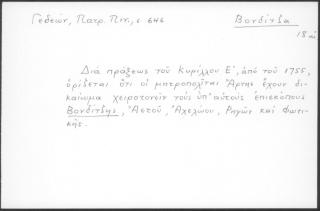 Γεδεών, Πατρ. Πιν., σ 646
Βονδίτζα
18 αἰ
Διὰ πράξεως τοῦ Κυρίλλου Ε', ἀπὸ τοῦ 1755,
ὁρίζεται ὅτι οἱ μητροπολῖται Ἄρτης ἔχουν δι-
καίωμα χειροτονεῖν τοὺς ὑπ' αὐτοὺς ἐπισκόπους
Βονδίτζης, Ἀετοῦ, Ἀχελώου, Ῥηγῶν καὶ Φωτι-
κῆς.